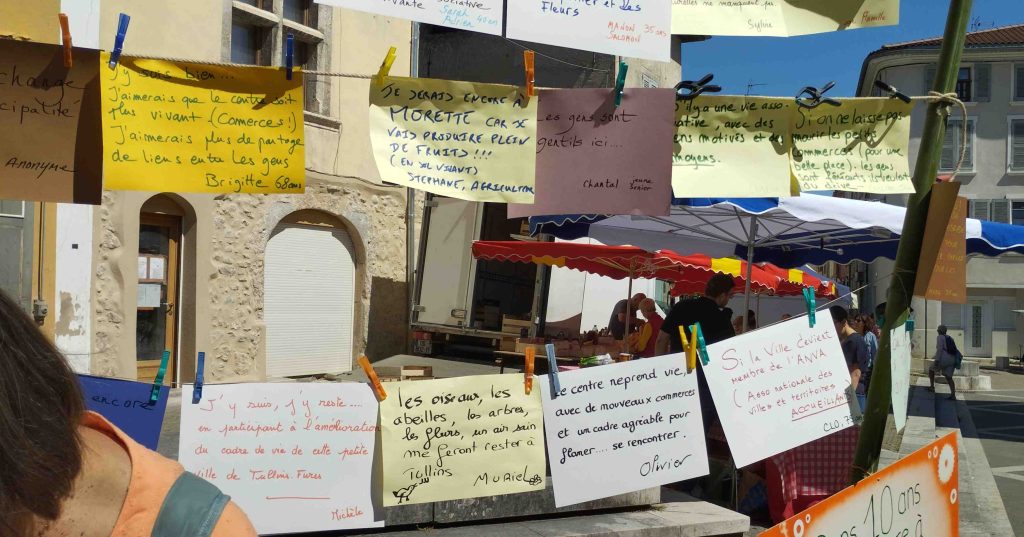 vivante
Sarah
Adrien 40 ans
Fleurs
MANON 35 ans
Sylvie
Famille
change
cipalité
Anonyme
J'y suis bien...
J'aimerais que le centre soit
plus vivant (Comerces!)
J'aimerais plus de partage
de liens entre les gens
Brigitte 68 ans
JE SERAIS ENCORE A
MORETTE CAR JE
VAIS PRODUIRE PLEIN
DE FRUITS !!!
(EN SOL VIVANT)
STEPHANE, AGRICULTEUR
Les gens sont
gentils ici....
Chantal jeune
senior
S'il y a une vie asso
ciative, avec des
gens motivés et des
moyens.
Si on ne laisse pas
mourir les petits
commerces pour une
belle place). les gens
encore
J'y suis, j'y reste....
en participant à l'amélioration
du cadre de vie de cette petite
ville de Tullins. Fures
Michèle
les oiseaux, les
abeilles, les arbres,
les fleurs, un air sain
me feront rester à
Tullins
MURIEL
Le centre reprend vie,
avec de nouveaux commerces
et un cadre agréable pour
flaner.... se rencontrer.
Olivier
Si la Ville devient
membre de l'ANVA
(Asso nationale des
villes et territoires
ACCUEILLANTS
CLO, 75
10 ans
à